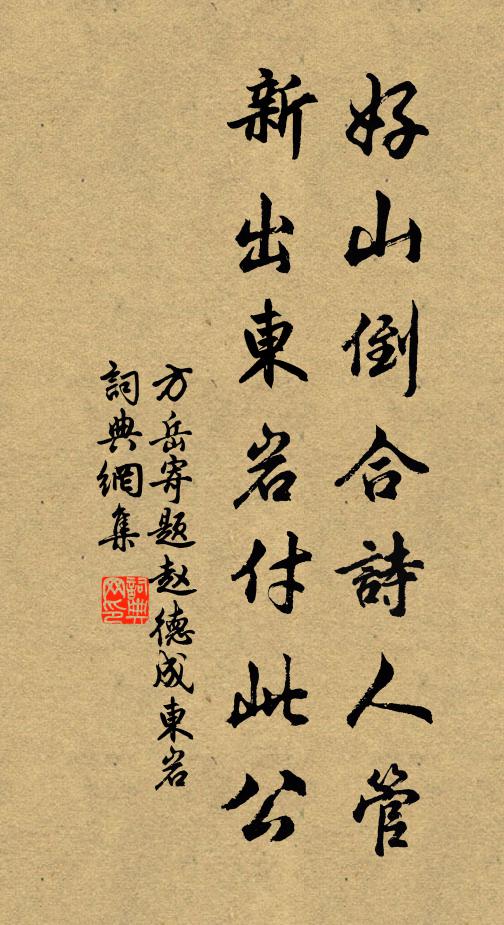 好山倒合詩人管
新出東岩付此公
方岳寄题赵德成東岩
詞典網集
詞典網印